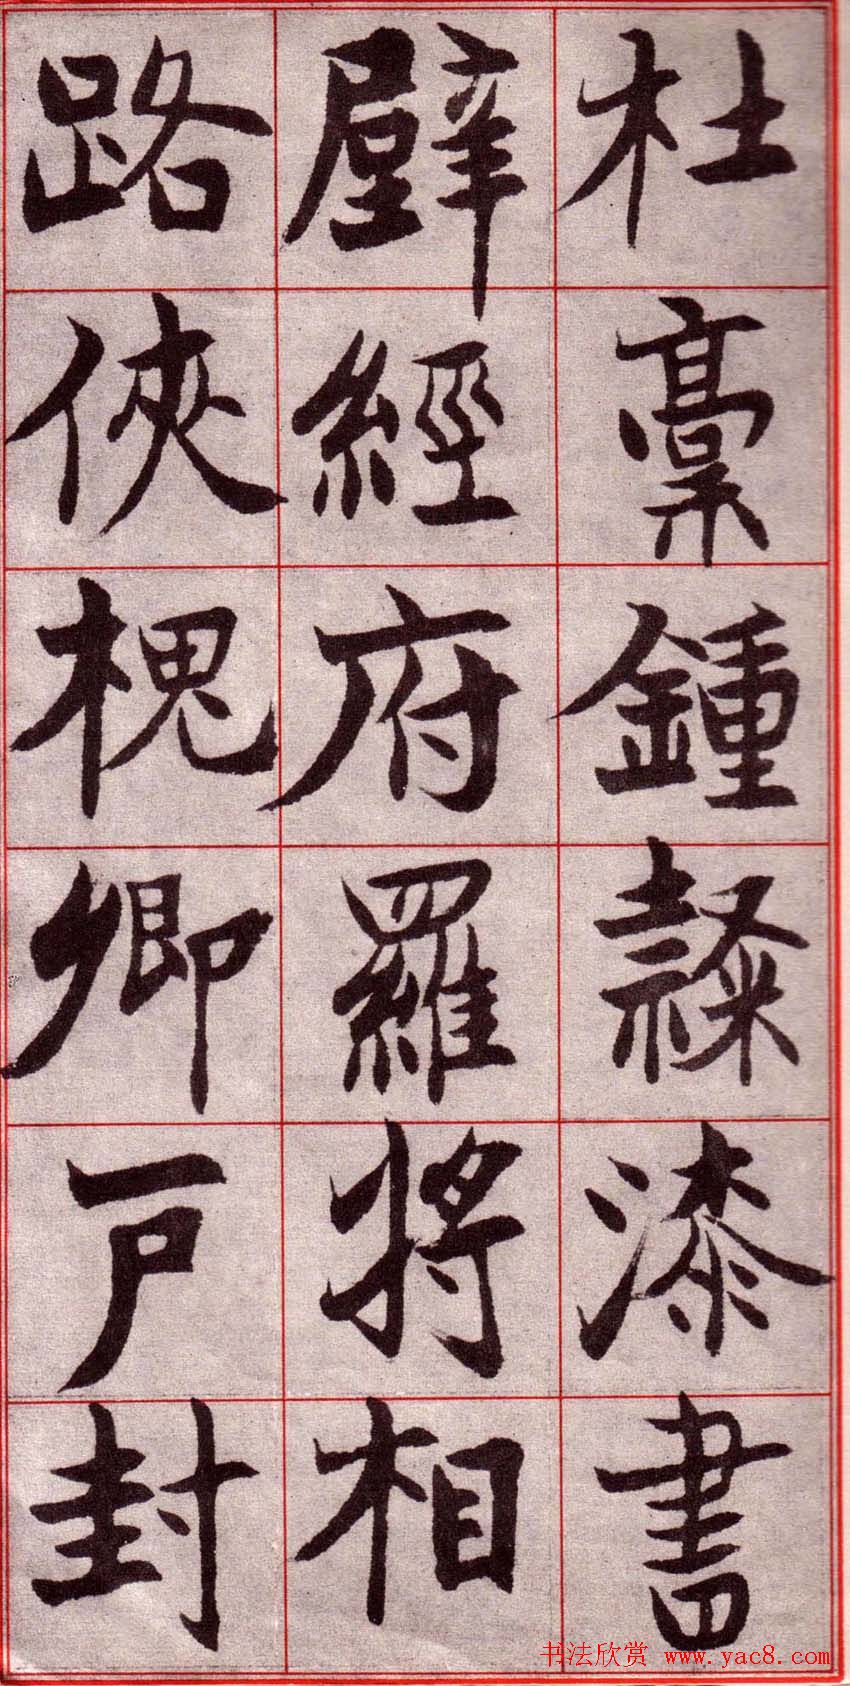 杜稾鍾隸漆書
壁經府羅將相
路俠槐卿户封
书法欣赏 www.yac8.com